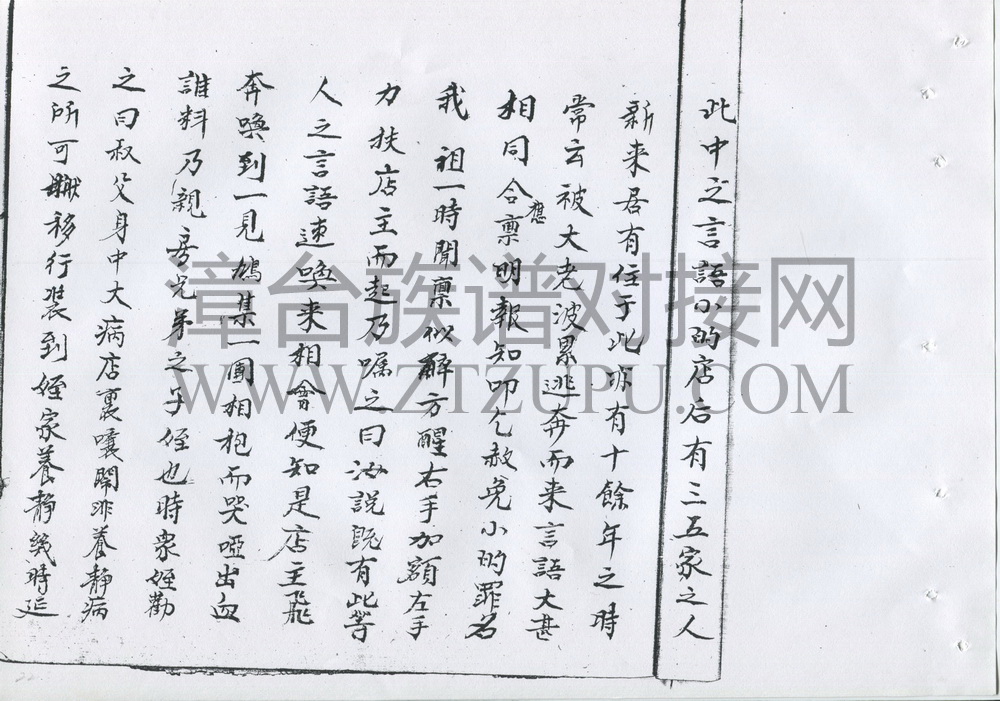 此中之言語小的店后有三五家之人
新来居有住于此亦有十餘年之時
常云被大老波累逃奔而来言語大甚
相同合應禀明報知叩乞赦免小的罪名
我祖一時聞禀似醉方醒右手加額左手
力扶店主而起乃嘱之曰汝説既有此等
人之言語速喚来相會便知是店主飛
奔喚到一見鳩集一團相抱而哭哑出血
誰料乃親房兄弟之子侄也時衆姪勸
之曰叔父身中大病店裏嚷閙非養静病
之所可移行装到姪家養静幾時延
章台族谱对接网
WWW.ZTZUPU.COM